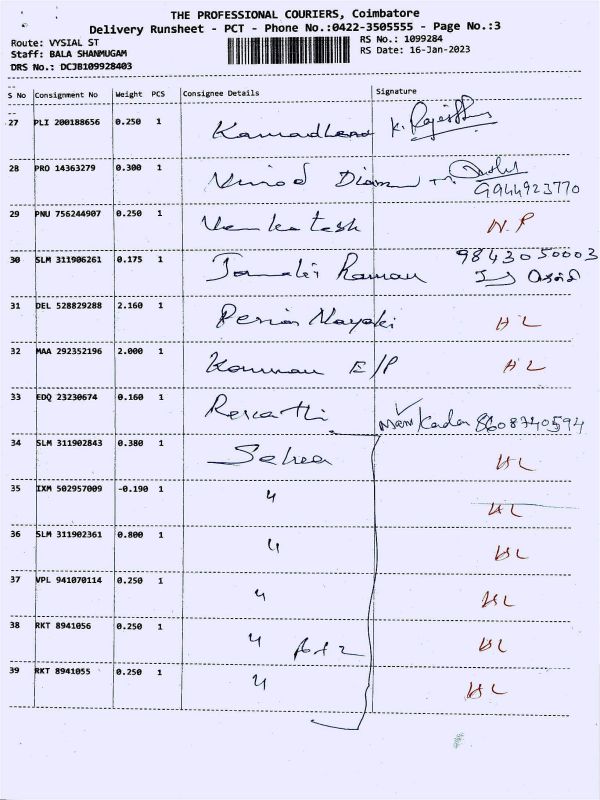 THE PROFESSIONAL COURIERS, Coimbatore
Delivery Runsheet - PCT - Phone No.:0422-3505555 - Page No.:3
Route: VYSIAL ST
RS No.: 1099284
Staff: BALA SHANMUGAM
RS Date: 16-Jan-2023
DRS No.: DCJB109928403
S No Consignment No Weight PCS Consignee Details Signature
27 PLI 200188656 0.250 1 K.
28 PRO 14363279 0.300 1 Vinod
9944923770
29 PNU 756244907 0.250 1 Venkatesh N.P
30 SLM 311906261 0.175 1 Raman 9843050003
31 DEL 528829288 2.160 1 HL
32 MAA 292352196 2.000 1 E/P HL
33 EDQ 23230674 0.160 1 8608740594
34 SLM 311902843 0.380 1 HL
35 IXM 502957009 -0.190 1 " HL
36 SLM 311902361 0.800 1 " HL
37 VPL 941070114 0.250 1 " HL
38 RKT 8941056 0.250 1 " HL
39 RKT 8941055 0.250 1 " HL